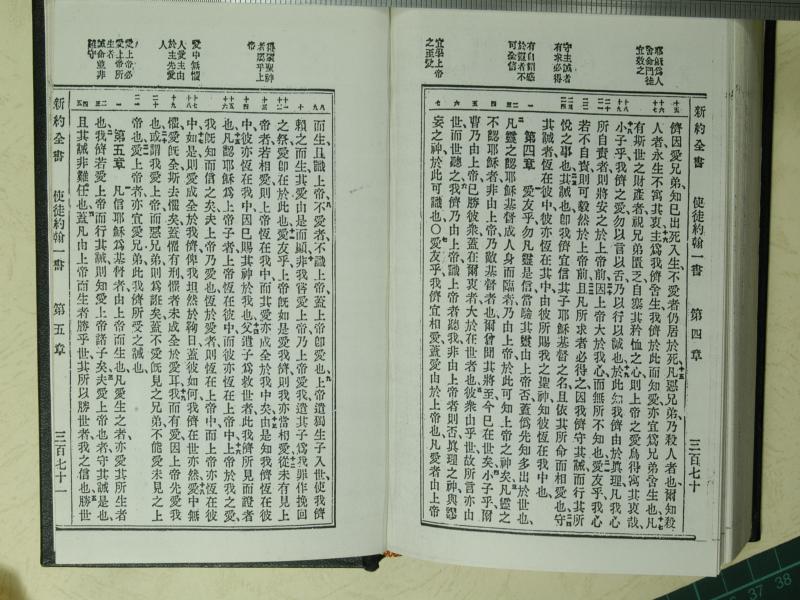 新約全書 使徒約翰一書 第四章 三百七十
儕因愛兄弟知已出死入生、不愛者仍居於死、凡惡兄弟、乃殺人者也、爾知殺
人者、永生不寓其衷、主爲我儕舍生、我儕於此而知愛、亦宜爲兄弟舍生也、凡
有斯世之財產者、視兄弟匱乏、自塞其矜恤之心、則上帝之愛、烏得寓其衷哉、
小子乎、我儕之愛、勿以言以舌、乃以行以誠也、於此知我儕由於眞理、凡我心
所自責者、則將安之於上帝前、因上帝大於我心、而無所不知也、愛友乎、我心
若不自責、則可毅然於上帝前、且凡所求者必得之、因我儕守其誡、而行其所
悅之事也、其誡也、卽我儕宜信其子耶穌基督之名、且依其所命而相愛也、守
其誡者、恆在彼中、彼亦恆在其中、由彼所賜我之聖神、知彼恆在我中也、
第四章 愛友乎、勿凡靈是信、當驗其靈由上帝否、蓋僞先知多出於世也、
凡靈之認耶穌基督成人身而臨者、乃由上帝、於此可知上帝之神矣、凡靈之
不認耶穌者、非由上帝、乃敵基督者也、爾曾聞其將至、今已在世矣、小子乎、爾
曹乃由上帝、已勝彼衆、蓋在爾衷者、大於在世者也、彼衆由乎世、故所言亦由
世、而世聽之、我儕乃由上帝、識上帝者聽我、非由上帝者則否、眞理之神與謬
妄之神、於此可識也、○愛友乎、我儕宜相愛、蓋愛由於上帝也、凡愛者由上帝
而生、且識上帝、不愛者不識上帝、蓋上帝卽愛也、上帝遣獨生子入世、使我儕
賴之而生、其愛由是而顯、非我嘗愛上帝、乃上帝愛我、遣其子爲我罪作挽回
之祭、愛卽在於此也、愛友乎、上帝旣如是愛我儕、則我亦當相愛、從未有見上
帝者、若相愛、則上帝恆在我中、而其愛亦成全於我中矣、由是知我儕恆在彼
中、彼亦恆在我中、因已賜其神於我也、父遣子爲救世者、此我儕所見而證者
也、凡認耶穌爲上帝子者、上帝恆在彼中、而彼亦恆在上帝中、上帝於我之愛、
我旣知而信之矣、夫上帝乃愛也、恆於愛者、則恆在上帝中、而上帝亦恆在彼
中、如是、則愛成全於我儕、俾我坦然於鞫日、蓋彼如何、我儕在世亦然、愛中無
懼、愛旣全、斯去懼矣、蓋懼有刑、懼者未成全於愛耳、我而有愛、因上帝先愛我
也、或謂我愛上帝、而惡兄弟、則爲誑矣、蓋不愛旣見之兄弟、不能愛未見之上
帝也、愛上帝者、亦宜愛兄弟、此我儕所受之誡也、
第五章 凡信耶穌爲基督者、由上帝而生也、凡愛生之者、亦愛其所生者
也、我儕若愛上帝而行其誡、則知愛上帝諸子矣、夫愛上帝也者、守其誡是也、
且其誡非難任也、蓋凡由上帝而生者、勝乎世、其所以勝世者、我之信也、勝世
新約全書 使徒約翰一書 第五章 三百七十一